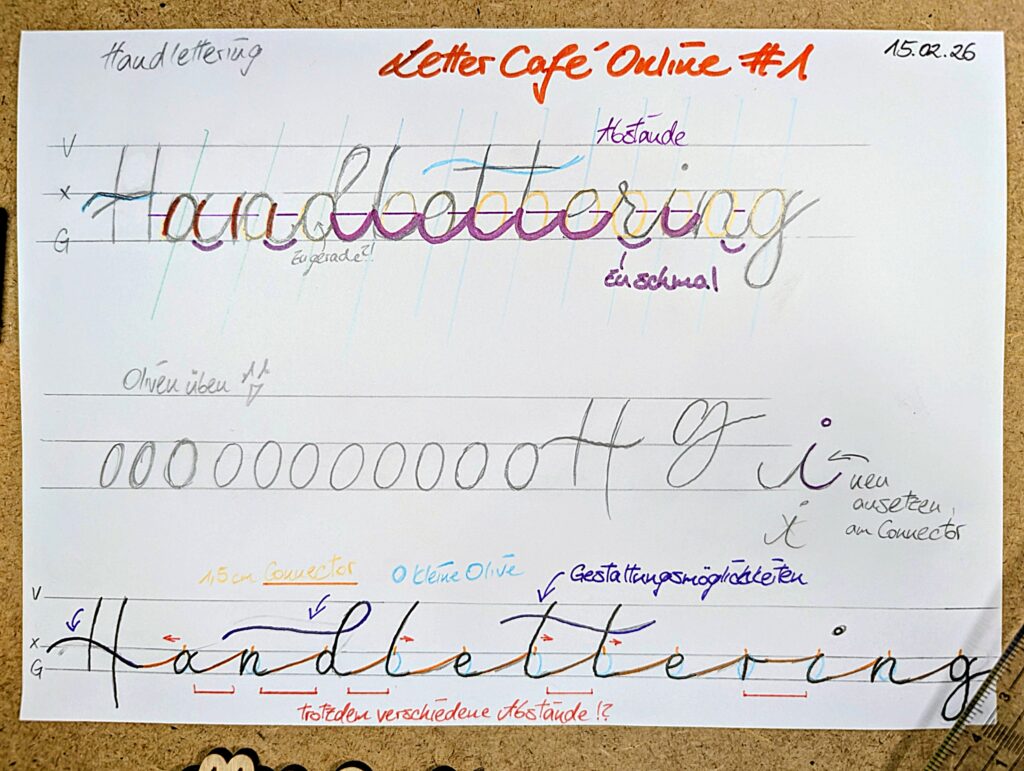 Handlettering
Letter Café Online #1
15.02.26
Abstände
V
x
G
Handlettering
zu gerade?!
zu schmal
Oliven üben
H g i
neu
ansetzen,
am Connector
i
1,5 cm Connector
0 kleine Olive
Gestaltungsmöglichkeiten
V
x
G
Handlettering
trotzdem verschiedene Abstände!?
3
1